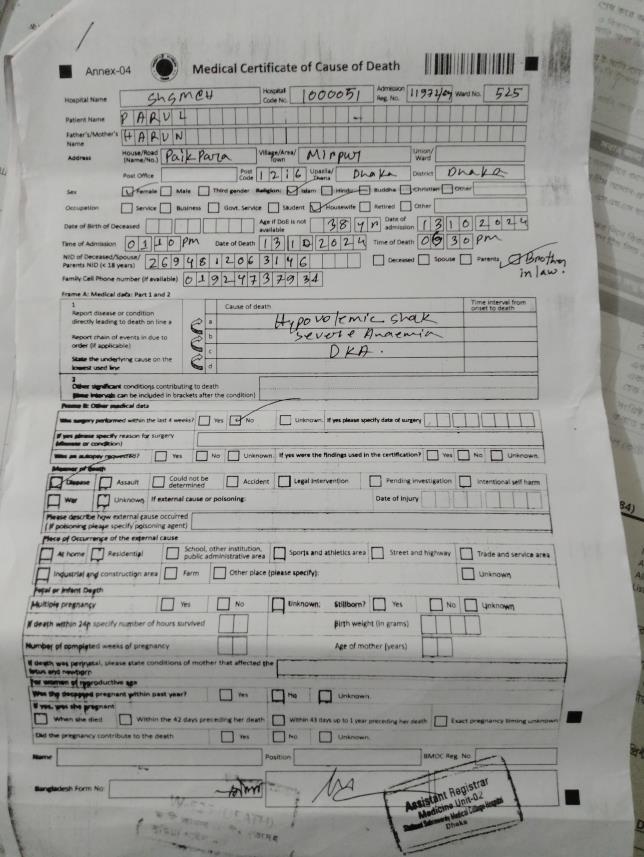 Annex-04 Medical Certificate of Cause of Death
Hospital Name ShSMCH Hospital Code No. 1000051 Admission Reg. No. 11972/04 Ward No. 525
Patient Name PARUL
Father's/Mother's Name HARUN
Address House/Road (Name/No.) Paikpara Village/Area/Town Mirpur Union/Ward
Post Office Post Code 1216 Upazila/Thana Dhaka District Dhaka
Sex Female Male Third gender Religion: Islam Hindu Buddha Christian Other
Occupation Service Business Govt. Service Student Housewife Retired Other
Date of Birth of Deceased Age if DoB is not available 38 yr Date of admission 13102024
Time of Admission 0110 pm Date of Death 13102024 Time of Death 0630 pm
NID of Deceased/Spouse/Parents NID (< 18 years) 2694812063146 Deceased Spouse Parents Brother in law.
Family Cell Phone number (if available) 01924737934
Frame A: Medical data: Part 1 and 2
1 Cause of death Time interval from onset to death
Report disease or condition directly leading to death on line a a Hypovolemic shak
Report chain of events in due to order (if applicable) b severe Anaemia
State the underlying cause on the lowest used line c DKA.
d
2
Other significant conditions contributing to death (time intervals can be included in brackets after the condition)
Frame B: Other medical data
Was surgery performed within the last 4 weeks? Yes No Unknown. If yes please specify date of surgery
If yes please specify reason for surgery (disease or condition)
Was an autopsy requested? Yes No Unknown. If yes were the findings used in the certification? Yes No Unknown.
Manner of Death
Disease Assault Could not be determined Accident Legal Intervention Pending investigation Intentional self harm
War Unknown If external cause or poisoning: Date of Injury
Please describe how external cause occurred (If poisoning please specify poisoning agent)
Place of Occurrence of the external cause
At home Residential School, other institution, public administrative area Sports and athletics area Street and highway Trade and service area
Industrial and construction area Farm Other place (please specify): Unknown
Fetal or Infant Death
Multiple pregnancy Yes No Unknown. Stillborn? Yes No Unknown
If death within 24h specify number of hours survived Birth weight (in grams)
Number of completed weeks of pregnancy Age of mother (years)
If death was perinatal, please state conditions of mother that affected the fetus and newborn
For women of reproductive age
Was the deceased pregnant within past year? Yes No Unknown.
If yes, was she pregnant
When she died Within the 42 days preceding her death Within 43 days up to 1 year preceding her death Exact pregnancy timing unknown
Did the pregnancy contribute to the death Yes No Unknown.
Name Position BMDC Reg. No.
Bangladesh Form No:
Assistant Registrar
Medicine Unit-02
Shaheed Suhrawardy Medical College Hospital
Dhaka